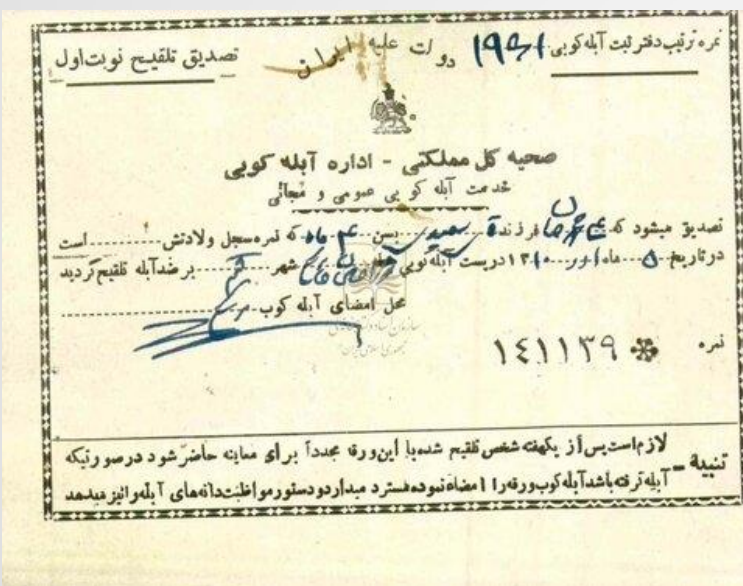 نمره ترتیب دفتر ثبت آبله کوبی ۱۹۵۱
دولت علیه ایران
تصدیق تلقیح نوبت اول
صحیه کل مملکتی - اداره آبله کوبی
خدمت آبله کوبی عمومی و مجانی
تصدیق میشود که فرزند بسن ۴ ماه که نمره سجل ولادتش است
در تاریخ ۵ ماه ۱۳۱۰ در پست آبله کوبی شهر بر ضد آبله تلقیح گردید
محل امضای آبله کوب
نمره ۱۴۱۱۳۹
تنبیه - لازم است پس از یکهفته شخص تلقیح شده با این ورقه مجدداً برای معاینه حاضر شود در صورتیکه
آبله گرفته باشد آبله کوب ورقه را امضاء نموده مسترد میدارد و دستور مواظبت دانه های آبله را نیز میدهد